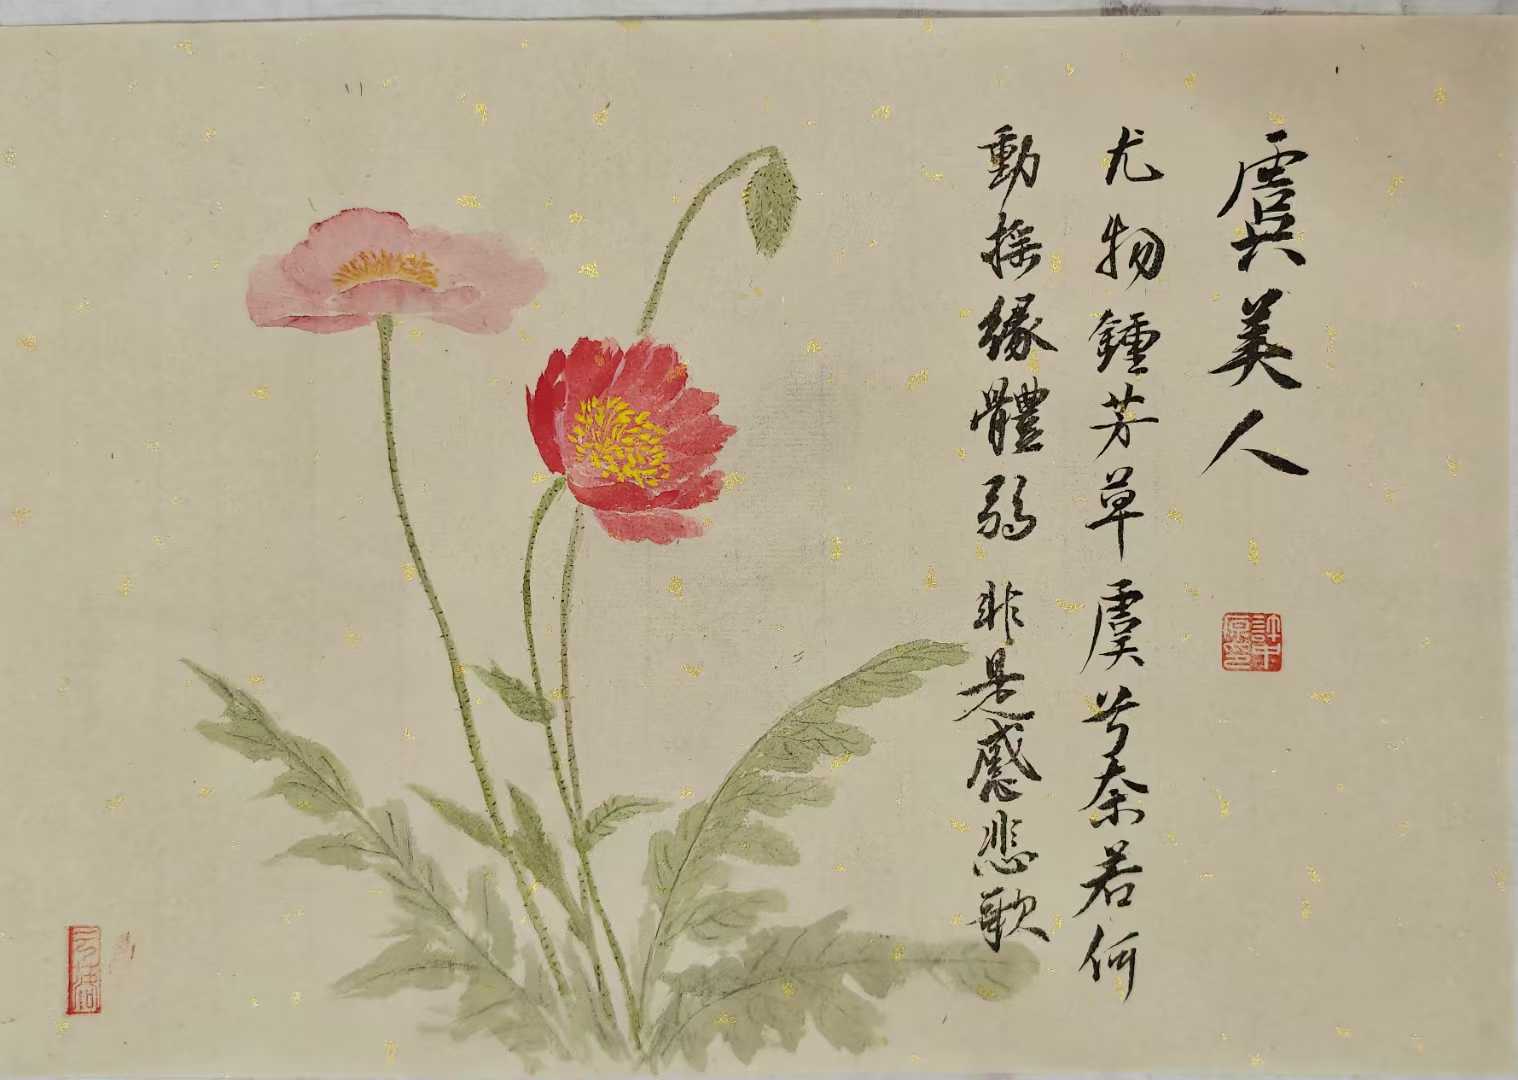 虞美人
尤物鍾芳草虞兮柰若何
動搖緣體弱非是感悲歌